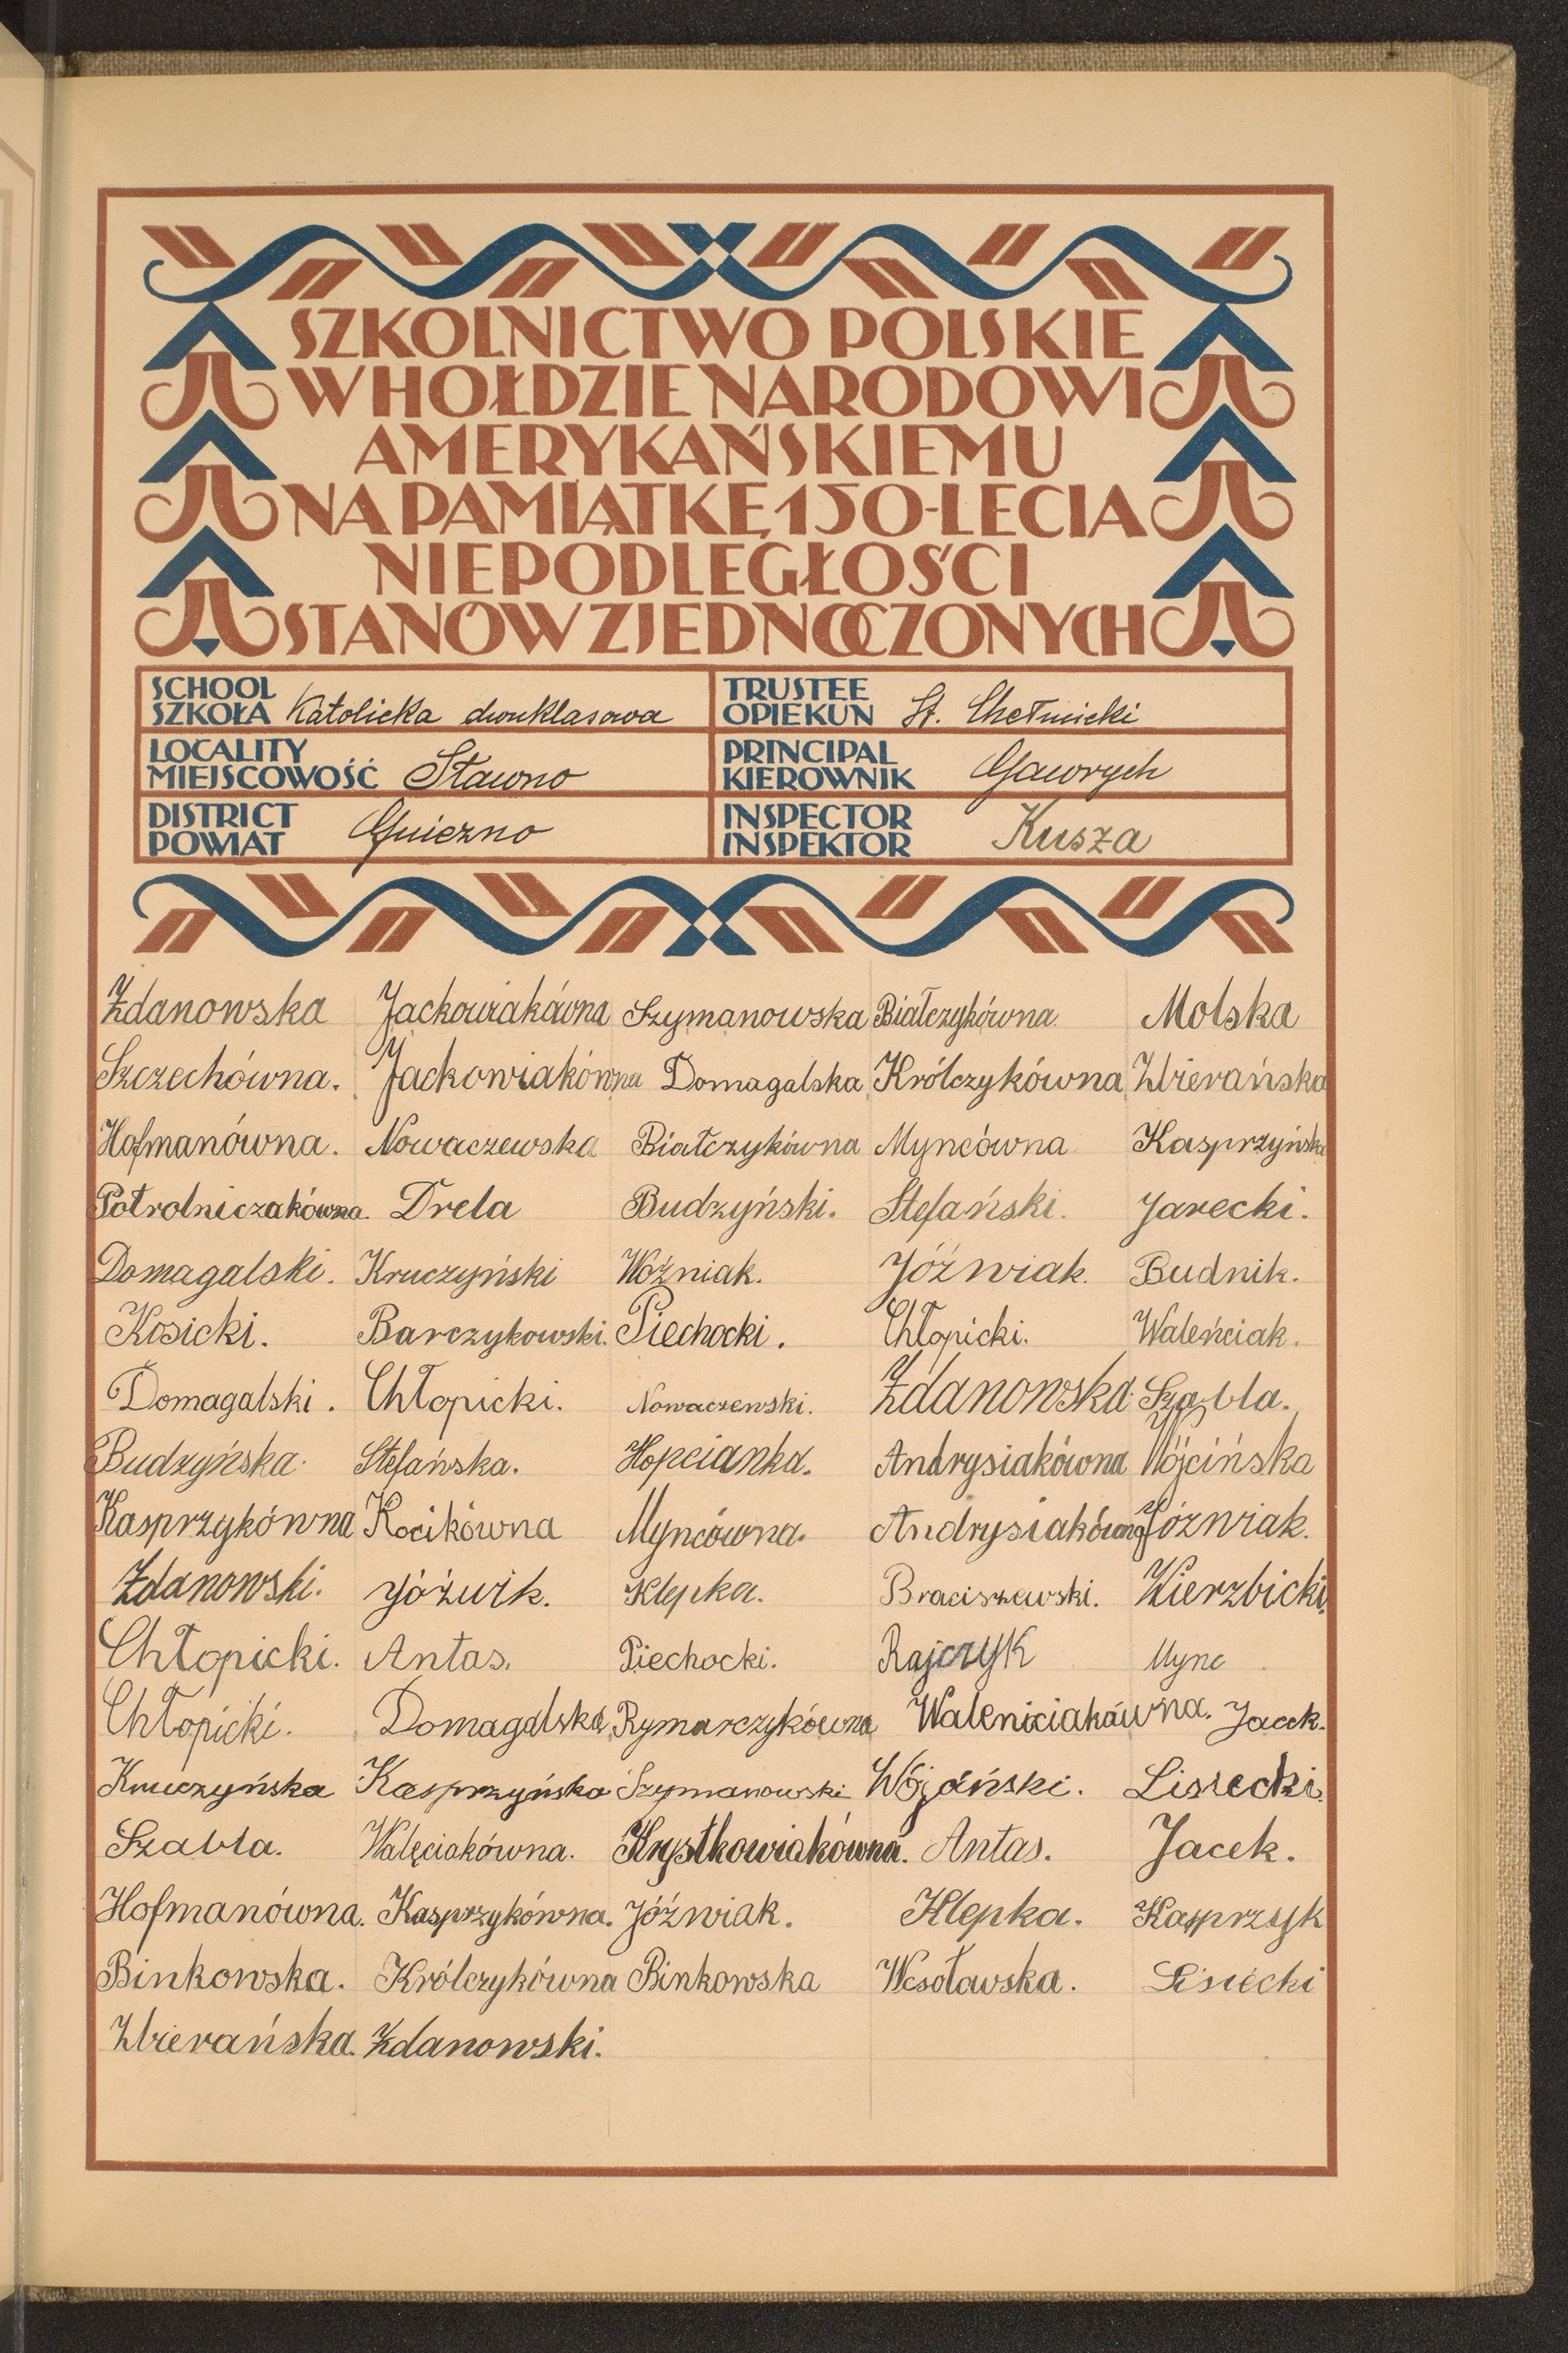 SZKOLNICTWO POLSKIE
W HOŁDZIE NARODOWI
AMERYKAŃSKIEMU
NA PAMIĄTKĘ 150-LECIA
NIEPODLEGŁOŚCI
STANÓW ZJEDNOCZONYCH
SCHOOL
SZKOŁA Katolicka dwuklasowa
TRUSTEE
OPIEKUN St. Chełmicki
LOCALITY
MIEJSCOWOŚĆ Sławno
PRINCIPAL
KIEROWNIK Gawrych
DISTRICT
POWIAT Gniezno
INSPECTOR
INSPEKTOR Kusza
Zdanowska Jackowiakówna Szymanowska Białczykówna Molska
Szczechówna. Jackowiakówna Domagalska Królczykówna Zbierańska
Hofmanówna. Nowaczewska Białczykówna Myncówna Kasprzyńska
Potrolniczakówna. Drela Budzyński. Stefański. Jarecki.
Domagalski. Kruczyński Woźniak. Jóźwiak. Budnik.
Kosicki. Barczykowski. Piechocki. Chłopicki. Waleńciak.
Domagalski. Chłopicki. Nowaczewski. Zdanowska Szabla.
Budzyńska. Stefańska. Hopcianka. Andrysiakówna Wójcińska
Kasprzykówna Kocikówna Myncówna. Andrysiakówna Jóźwiak.
Zdanowski. Jóźwik. Klepka. Braciszewski. Wierzbicki.
Chłopicki. Antas. Piechocki. Rajczyk Mync
Chłopicki. Domagalska Rymarczykówna Waleniciakówna. Jacek.
Kruczyńska Kasprzyńska Szymanowski Wójciński. Lisiecki.
Szabla. Walęciakówna. Krystkowiakówna. Antas. Jacek.
Hofmanówna. Kasprzykówna. Jóźwiak. Klepka. Kasprzyk
Binkowska. Królczykówna Binkowska Wesołowska. Lisiecki
Zbierańska. Zdanowski.